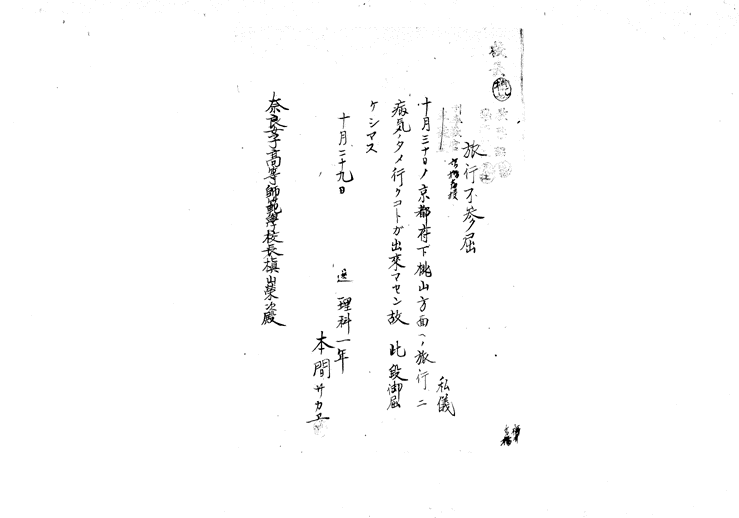 旅行不参届
私儀
十月三十日ノ京都府下桃山方面ヘノ旅行ニ
病気ノタメ行クコトガ出来マセン故此段御届
ケシマス
十月二十九日
理科一年
本間サカヱ
奈良女子高等師範学校長槙山榮次殿